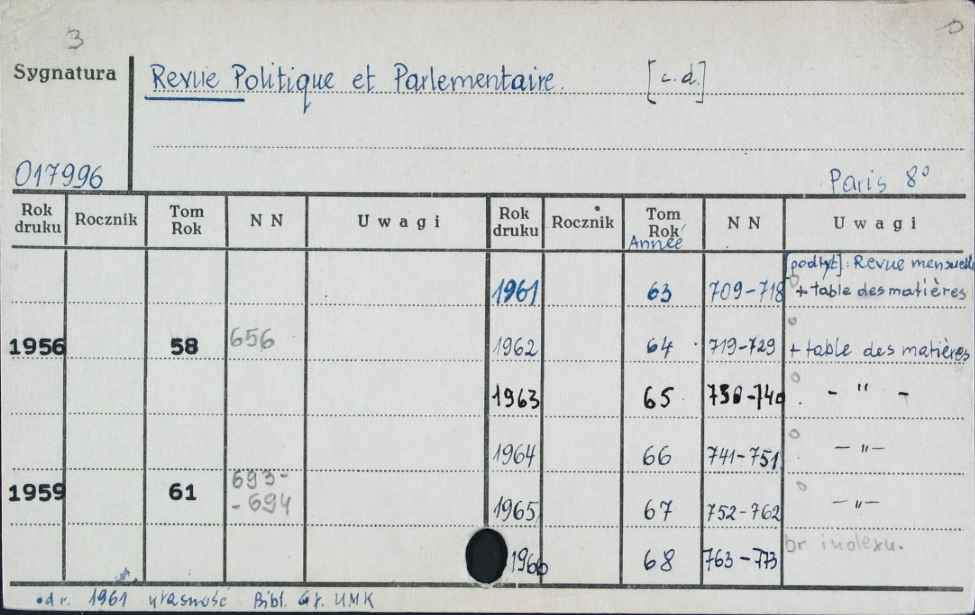 3
Sygnatura Revue Politique et Parlementaire. [c.d.]
017996 Paris 8°
Rok druku Rocznik Tom Rok NN Uwagi Rok druku Rocznik Tom Rok Année NN Uwagi
[podtyt]: Revue mensuelle
1961 63 709-718 + table des matières
1956 58 656 1962 64 719-729 + table des matières
1963 65 730-740 - " -
1964 66 741-751 - " -
1959 61 693-694 1965 67 752-762 - " -
1966 68 763-773 br indexu.
od r. 1961 własność Bibl. Gł. UMK